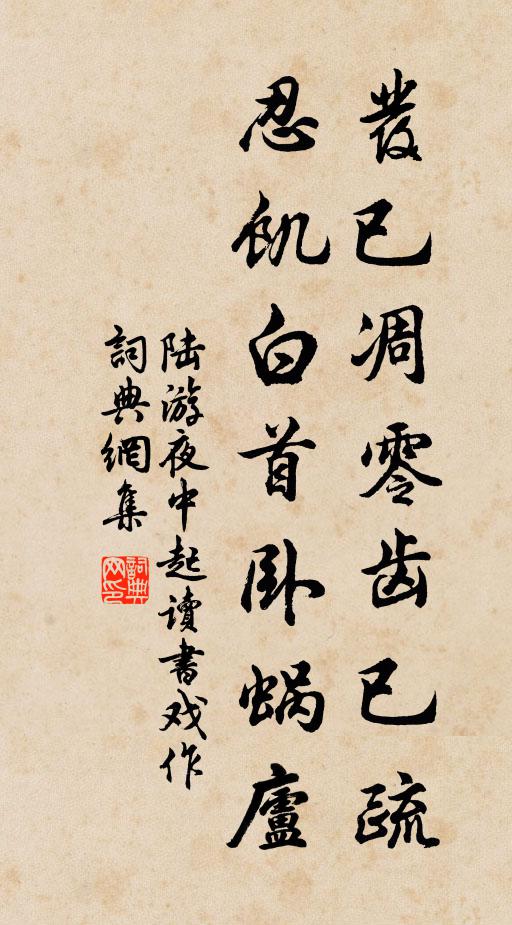 發已凋零齿已疏
忍飢白首卧蜗廬
陆游夜中起讀書戏作
詞典網集
詞典网印